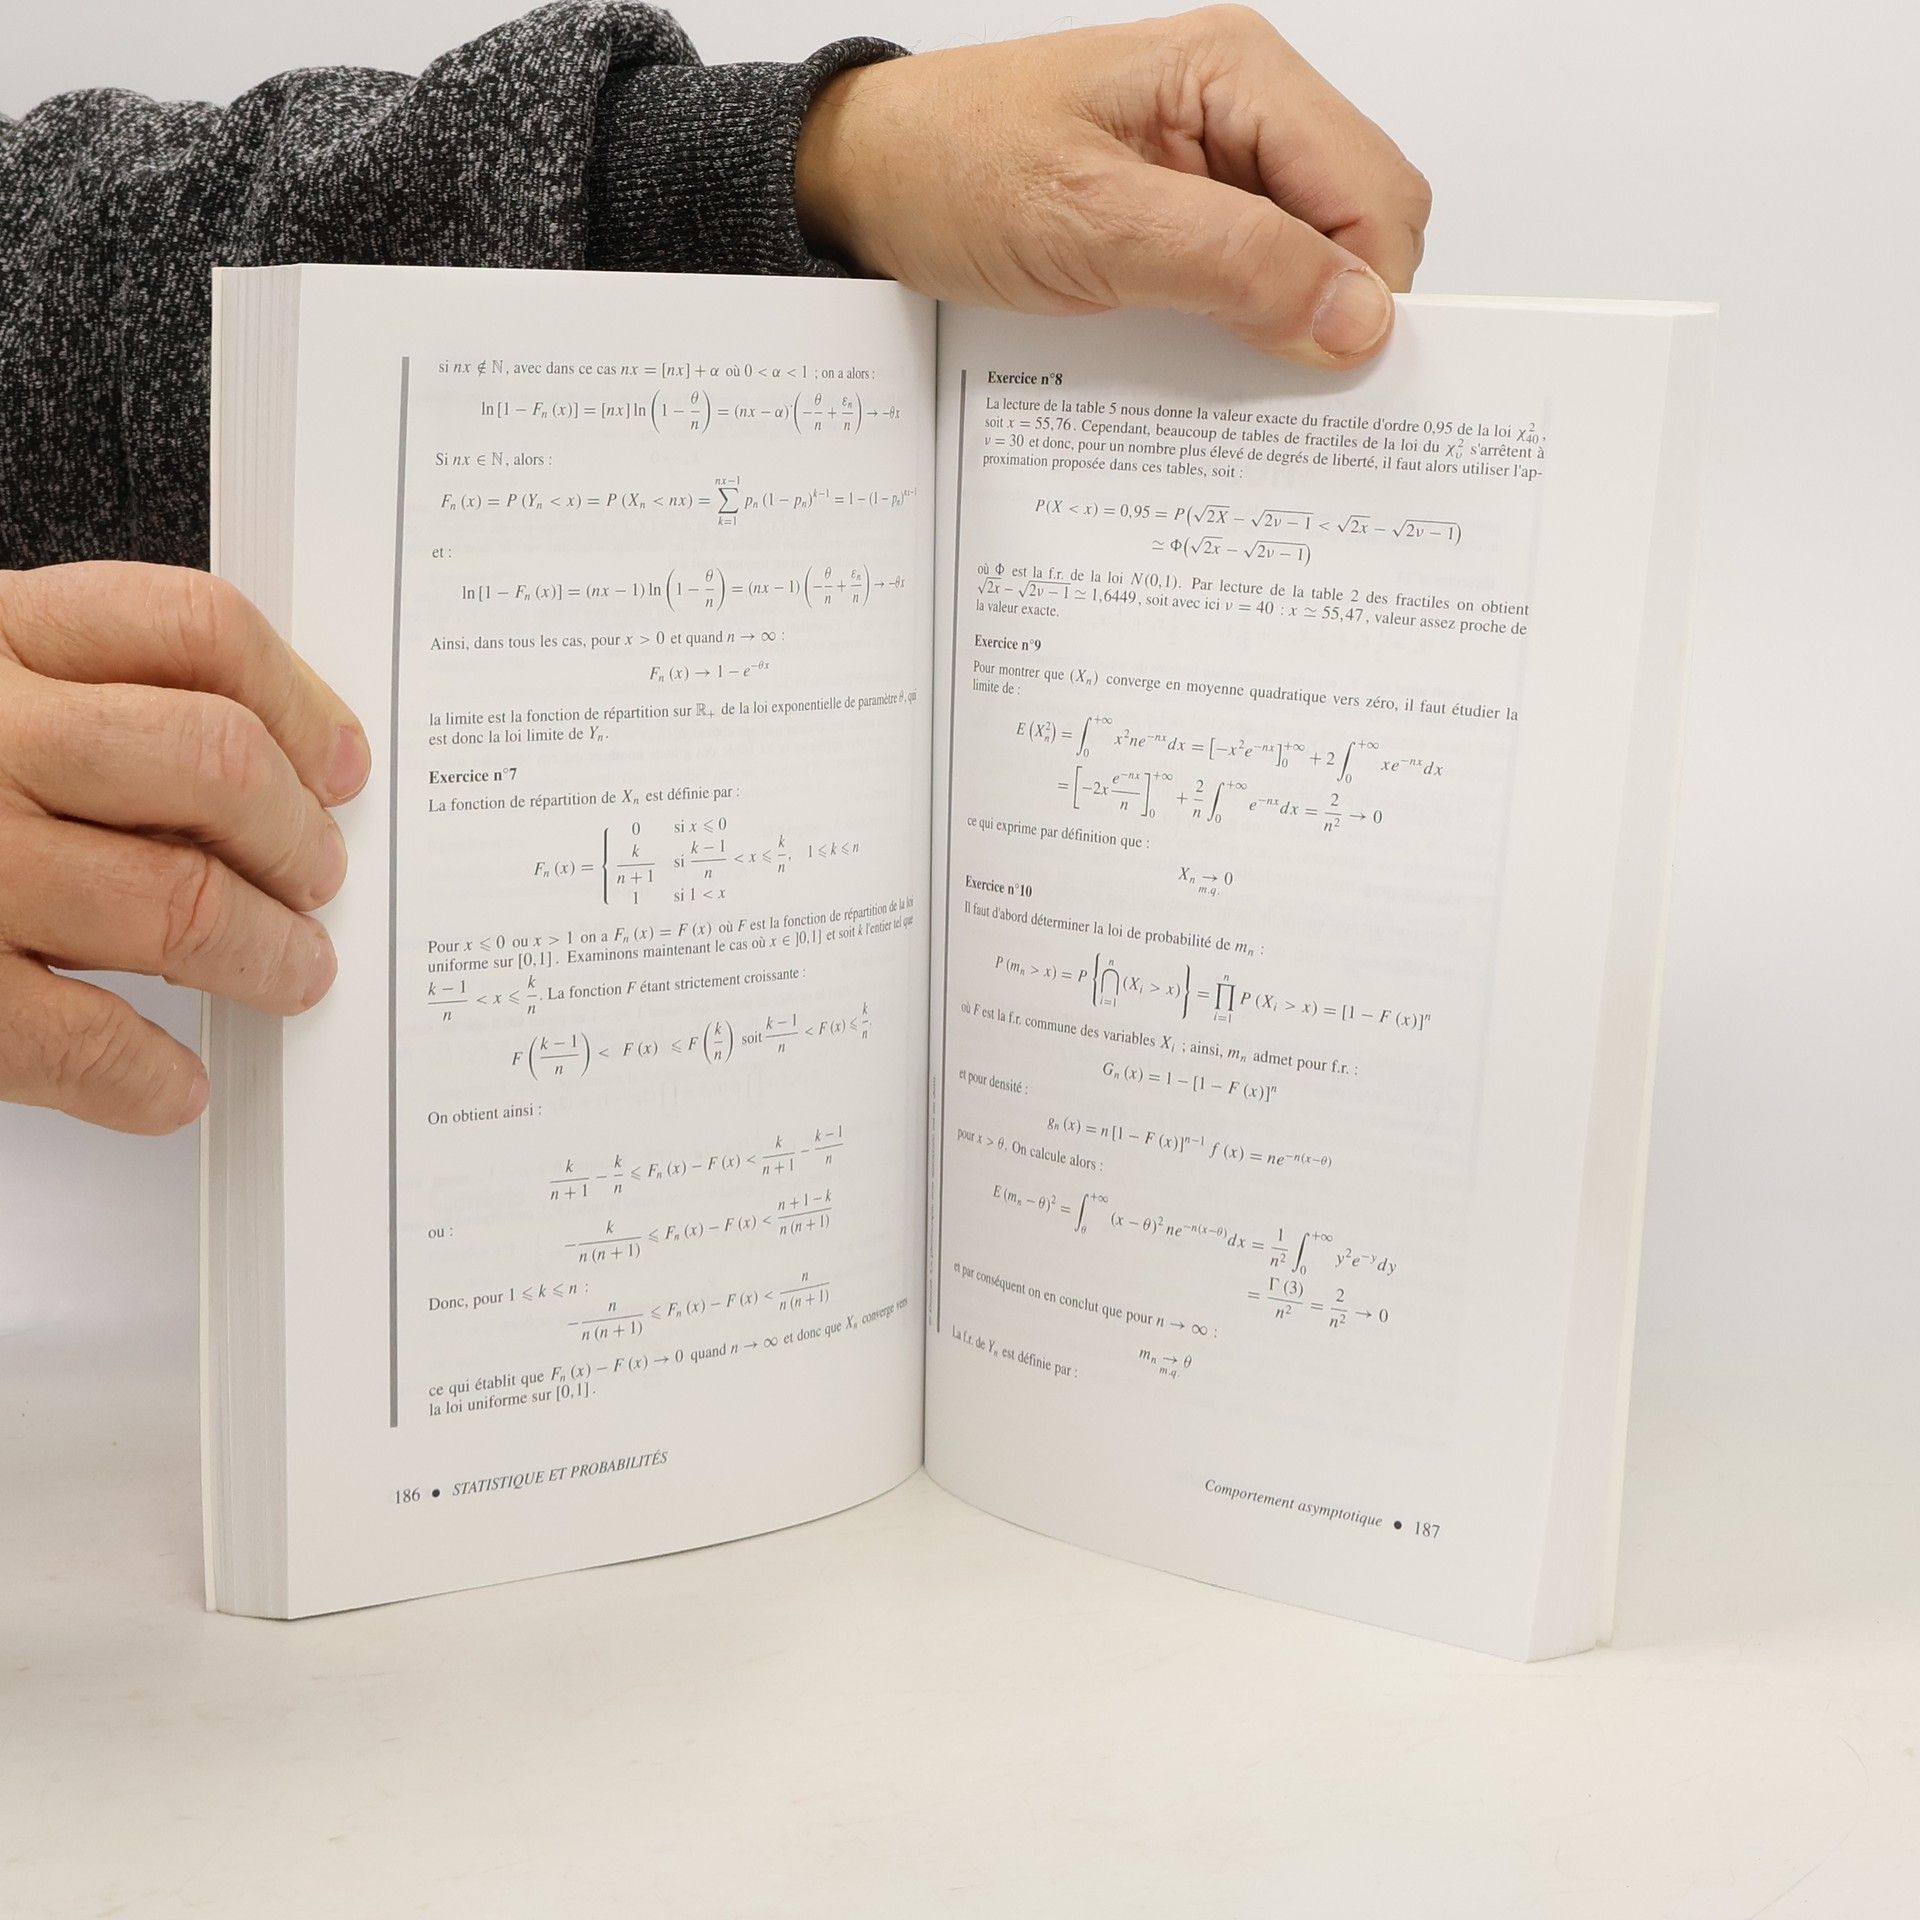 si nx ∉ ℕ, avec dans ce cas nx = [nx] + α où 0 < α < 1 ; on a alors :
ln [1 − Fₙ (x)] = [nx] ln (1 − θ/n) = (nx − α) (−θ/n + εₙ/n) → −θx
Si nx ∈ ℕ, alors :
Fₙ (x) = P (Yₙ < x) = P (Xₙ < nx) = ∑_{k=1}^{nx−1} pₙ (1 − pₙ)^{k−1} = 1 − (1 − pₙ)^{nx−1}
et :
ln [1 − Fₙ (x)] = (nx − 1) ln (1 − θ/n) = (nx − 1) (−θ/n + εₙ/n) → −θx
Ainsi, dans tous les cas, pour x > 0 et quand n → ∞ :
Fₙ (x) → 1 − e^{−θx}
la limite est la fonction de répartition sur ℝ₊ de la loi exponentielle de paramètre θ, qui
est donc la loi limite de Yₙ.
Exercice n°7
La fonction de répartition de Xₙ est définie par :
Fₙ (x) = { 0 si x ⩽ 0
k/(n + 1) si (k − 1)/n < x ⩽ k/n, 1 ⩽ k ⩽ n
1 si 1 < x
Pour x ⩽ 0 ou x > 1 on a Fₙ (x) = F (x) où F est la fonction de répartition de la loi
uniforme sur [0, 1]. Examinons maintenant le cas où x ∈ ]0, 1] et soit k l'entier tel que
(k − 1)/n < x ⩽ k/n. La fonction F étant strictement croissante :
F ((k − 1)/n) < F (x) ⩽ F (k/n) soit (k − 1)/n < F (x) ⩽ k/n.
On obtient ainsi :
k/(n + 1) − k/n ⩽ Fₙ (x) − F (x) < k/(n + 1) − (k − 1)/n
ou :
−k/(n (n + 1)) ⩽ Fₙ (x) − F (x) < (n + 1 − k)/(n (n + 1))
Donc, pour 1 ⩽ k ⩽ n :
−n/(n (n + 1)) ⩽ Fₙ (x) − F (x) < n/(n (n + 1))
ce qui établit que Fₙ (x) − F (x) → 0 quand n → ∞ et donc que Xₙ converge vers
la loi uniforme sur [0, 1].
186 • STATISTIQUE ET PROBABILITÉS
Exercice n°8
La lecture de la table 5 nous donne la valeur exacte du fractile d'ordre 0,95 de la loi χ²₄₀,
soit x = 55,76. Cependant, beaucoup de tables de fractiles de la loi du χ²_ν s'arrêtent à
ν = 30 et donc, pour un nombre plus élevé de degrés de liberté, il faut alors utiliser l'ap-
proximation proposée dans ces tables, soit :
P(X < x) = 0,95 = P(√(2X) − √(2ν − 1) < √(2x) − √(2ν − 1))
≃ Φ(√(2x) − √(2ν − 1))
où Φ est la f.r. de la loi N(0, 1). Par lecture de la table 2 des fractiles on obtient
√(2x) − √(2ν − 1) ≃ 1,6449, soit avec ici ν = 40 : x ≃ 55,47, valeur assez proche de
la valeur exacte.
Exercice n°9
Pour montrer que (Xₙ) converge en moyenne quadratique vers zéro, il faut étudier la
limite de :
E (Xₙ²) = ∫₀^{+∞} x²ne^{−nx}dx = [−x²e^{−nx}]₀^{+∞} + 2 ∫₀^{+∞} xe^{−nx}dx
= [−2x e^{−nx}/n]₀^{+∞} + 2/n ∫₀^{+∞} e^{−nx}dx = 2/n² → 0
ce qui exprime par définition que :
Xₙ → 0
m.q.
Exercice n°10
Il faut d'abord déterminer la loi de probabilité de mₙ :
P (mₙ > x) = P {⋂_{i=1}^{n} (Xᵢ > x)} = ∏_{i=1}^{n} P (Xᵢ > x) = [1 − F (x)]ⁿ
où F est la f.r. commune des variables Xᵢ ; ainsi, mₙ admet pour f.r. :
Gₙ (x) = 1 − [1 − F (x)]ⁿ
et pour densité :
gₙ (x) = n [1 − F (x)]^{n−1} f (x) = ne^{−n(x−θ)}
pour x > θ. On calcule alors :
E (mₙ − θ)² = ∫_θ^{+∞} (x − θ)² ne^{−n(x−θ)}dx = 1/n² ∫₀^{+∞} y²e^{−y}dy
= Γ (3)/n² = 2/n² → 0
et par conséquent on en conclut que pour n → ∞ :
mₙ → θ
m.q.
La f.r. de Yₙ est définie par :
Comportement asymptotique • 187